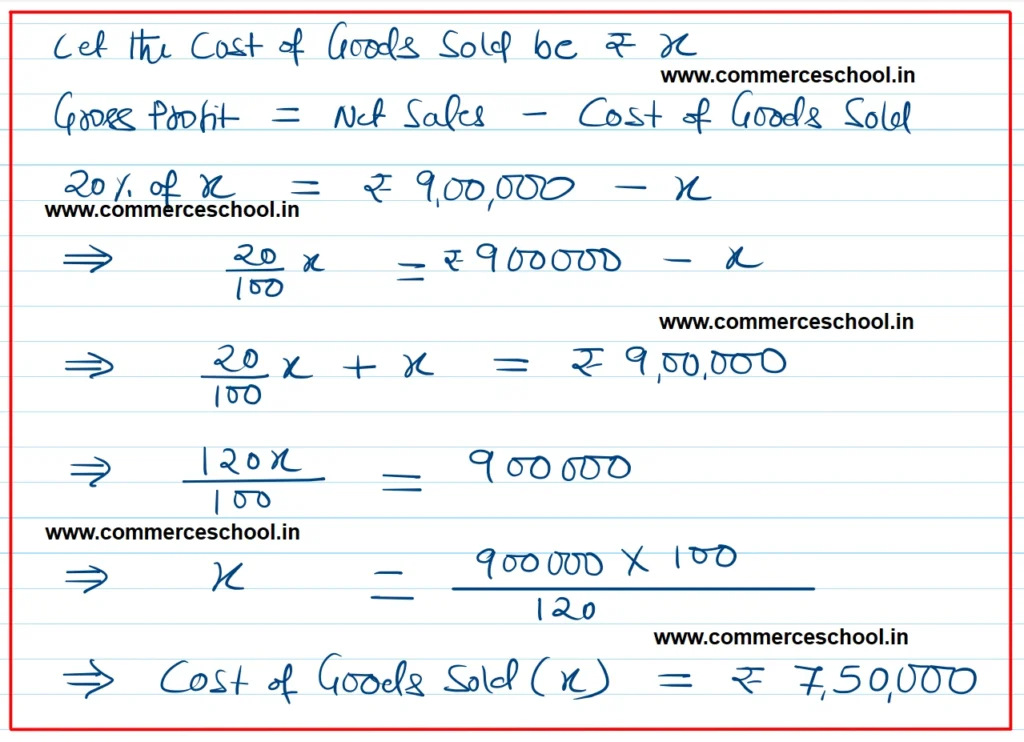 Let the Cost of Goods Sold be ₹ x
www.commerceschool.in
Gross Profit = Net Sales - Cost of Goods Sold
20% of x = ₹ 9,00,000 - x
www.commerceschool.in
⇒ 20/100 x = ₹ 900000 - x
www.commerceschool.in
⇒ 20/100 x + x = ₹ 9,00,000
⇒ 120x/100 = 900000
www.commerceschool.in
⇒ x = 900000 × 100/120
www.commerceschool.in
⇒ Cost of Goods Sold (x) = ₹ 7,50,000